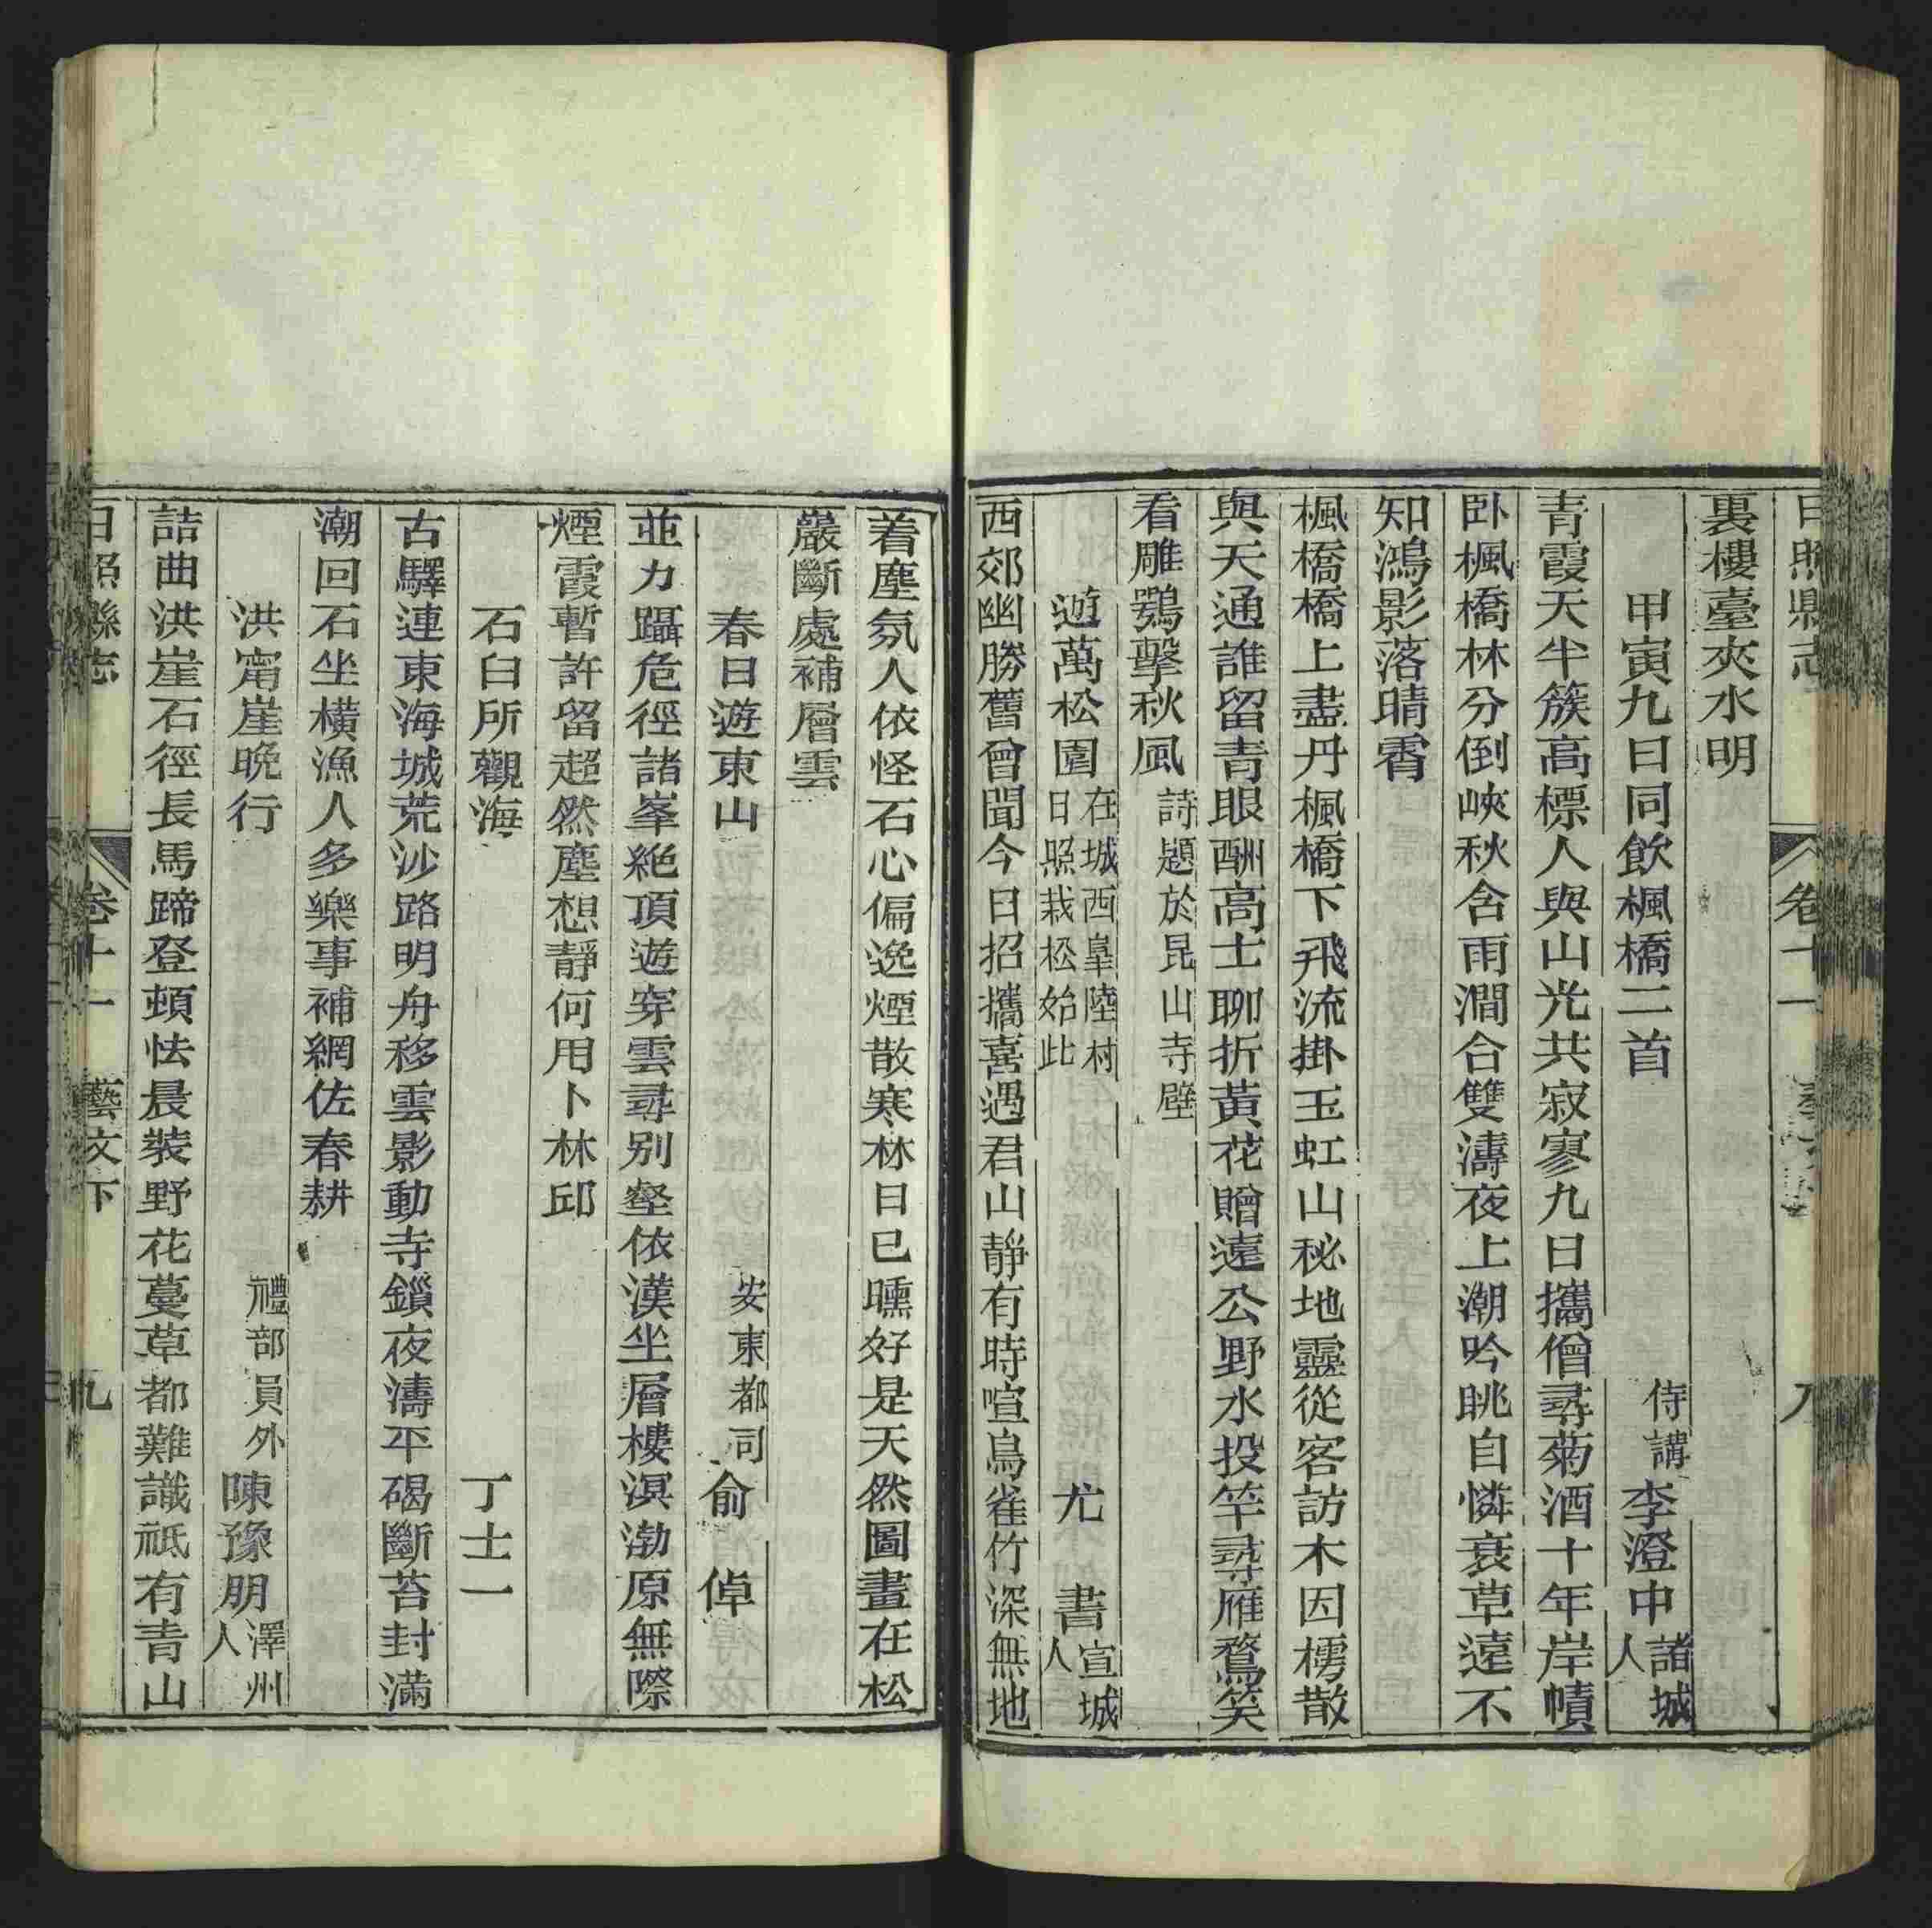 日照縣志 卷十一 藝文 八
裏樓臺夾水明
甲寅九日同飲楓橋二首 侍講 李澄中 諸城人
青霞天半簇高標人與山光共寂寥九日攜僧尋菊酒十年岸幘
卧楓橋林分倒峽秋含雨澗合雙濤夜上潮吟眺自憐衰草遠不
知鴻影落晴霄
楓橋橋上盡丹楓橋下飛流掛玉虹山秘地靈從客訪木因樗散
與天通誰留青眼酬高士聊折黃花贈遠公野水投竿尋雁鶩笑
看雕鶚擊秋風 詩題於昆山寺壁
遊萬松園 在城西臯陸村日照栽松始此 尤書 宣城人
西郊幽勝舊曾聞今日招攜喜遇君山靜有時喧鳥雀竹深無地
着塵氛人依怪石心偏逸煙散寒林日已曛好是天然圖畫在松
巖斷處補層雲
春日遊東山 安東都司 俞倬
並力躡危徑諸峯絶頂遊穿雲尋别壑依漢坐層樓溟渤原無際
煙霞暫許留超然塵想靜何用卜林邱
石臼所觀海 丁士一
古驛連東海城荒沙路明舟移雲影動寺鎖夜濤平碣斷苔封滿
潮回石坐橫漁人多樂事補網佐春耕
洪甯崖晚行 禮部員外 陳豫朋 澤州人
詰曲洪崖石徑長馬蹄登頓怯晨裝野花蔓草都難識祗有青山
日照縣志 卷十一 藝文下 九